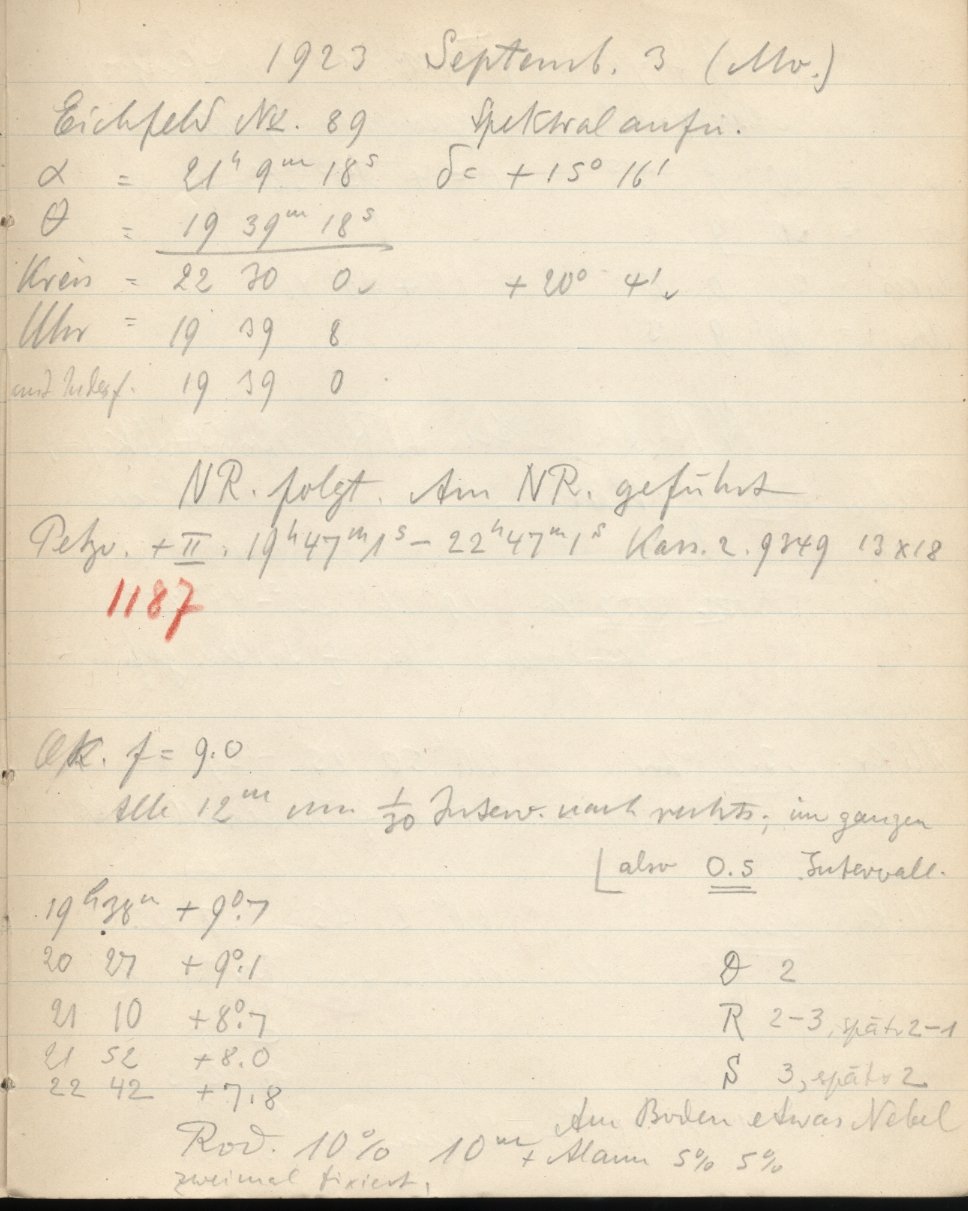 1923 Septemb. 3 (Mo.)
Eichfeld Nr. 89 Spektralaufn.
α = 21ʰ 9ᵐ 18ˢ δ = + 15° 16'
θ = 19 39ᵐ 18ˢ
Kreis = 22 30 0 + 20° 4'
Uhr = 19 39 8
19 39 0
NR. folgt. Am NR. geführt
Petzv. + II. 19ʰ47ᵐ1ˢ – 22ʰ47ᵐ1ˢ Kass. 2. 9349 13 x 18
1187
Ok. f = 9.0
Alle 12ᵐ um 1/30 Interv. nach rechts; im ganzen
also 0.5 Intervall.
19ʰ 38ᵐ + 9°.7
20 27 + 9°.1
21 10 + 8°.7
21 52 + 8.0
22 42 + 7.8
D 2
R 2–3, spät. 2–1
S 3, spät. 2
Am Boden etwas Nebel
Rod. 10% 10ᵐ + Alaun 5% 5%
zweimal fixiert.